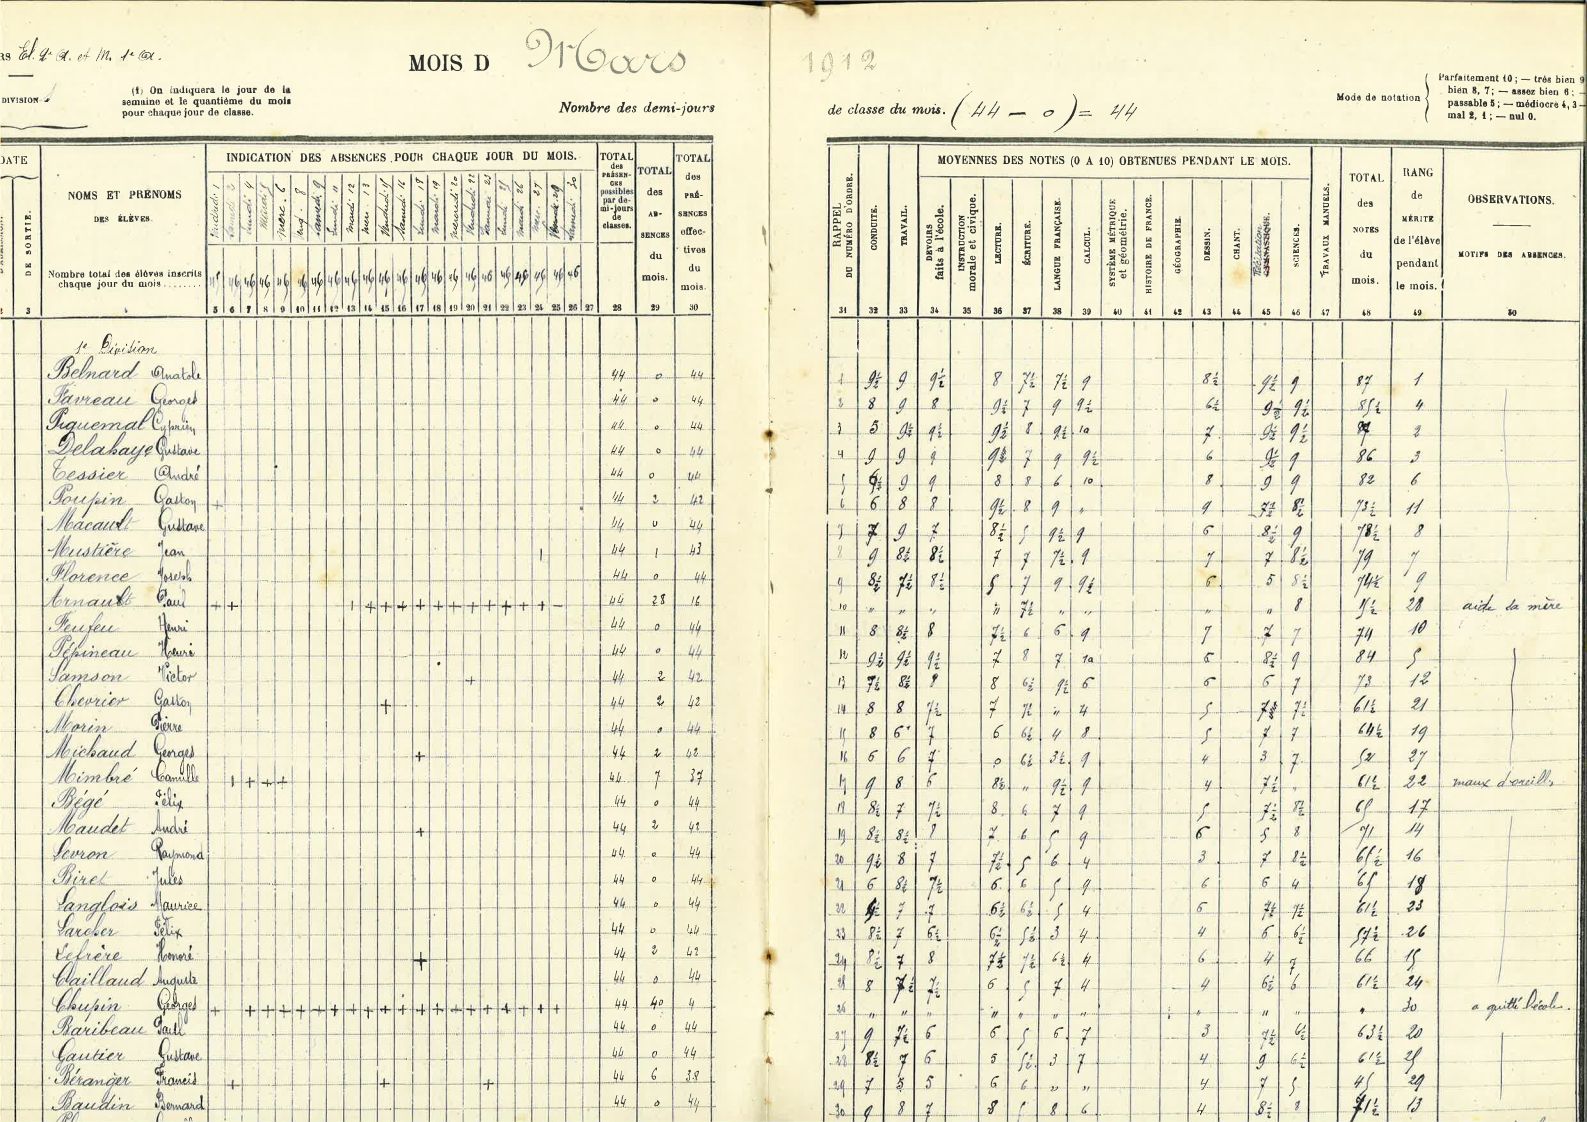 RS El. gr A. et M. 1e A.
MOIS D Mars 1912
DIVISION
(1) On indiquera le jour de la
semaine et le quantième du mois
pour chaque jour de classe.
Nombre des demi-jours
de classe du mois. (44 — 0) = 44
Mode de notation
Parfaitement 10; — très bien 9
bien 8, 7; — assez bien 6; —
passable 5; — médiocre 4, 3 —
mal 2, 1; — nul 0.
DATE
DE SORTIE.
NOMS ET PRÉNOMS
DES ÉLÈVES.
Nombre total des élèves inscrits
chaque jour du mois
INDICATION DES ABSENCES POUR CHAQUE JOUR DU MOIS.
TOTAL des PRÉSENCES possibles par demi-jours de classes.
TOTAL des ABSENCES du mois.
TOTAL des PRÉSENCES effectives du mois.
RAPPEL DU NUMÉRO D'ORDRE.
MOYENNES DES NOTES (0 A 10) OBTENUES PENDANT LE MOIS.
CONDUITE.
TRAVAIL.
DEVOIRS faits à l'école.
INSTRUCTION morale et civique.
LECTURE.
ÉCRITURE.
LANGUE FRANÇAISE.
CALCUL.
SYSTÈME MÉTRIQUE et géométrie.
HISTOIRE DE FRANCE.
GÉOGRAPHIE
DESSIN.
CHANT.
GYMNASTIQUE.
SCIENCES.
TRAVAUX MANUELS.
TOTAL des NOTES du mois.
RANG de MÉRITE de l'élève pendant le mois.
OBSERVATIONS.
MOTIFS DES ABSENCES.
3 4 5 6 7 8 9 10 11 12 13 14 15 16 17 18 19 20 21 22 23 24 25 26 27 28 29 30
31 32 33 34 35 36 37 38 39 40 41 42 43 44 45 46 47 48 49 50
1e Division
Belnard Anatole 44 0 44 1 9½ 9 9½ 8 7½ 7½ 9 8½ 9½ 9 87 1
Favreau Georges 44 0 44 2 8 9 8 9½ 7 9 9½ 6½ 9½ 9½ 85½ 4
Piquemal Cyprien 44 0 44 3 5 9½ 9½ 9½ 8 9½ 10 7 9½ 9½ 87 2
Delahaye Gustave 44 0 44 4 9 9 9 9½ 7 9 9½ 6 9½ 9 86 3
Tessier André 44 0 44 5 9½ 9 9 8 8 6 10 8 9 9 82 6
Poupin Gaston + 44 2 42 6 6 8 8 9½ 8 9 " 9 7½ 8½ 73½ 11
Macault Gustave 44 0 44 7 7 9 7 8½ 5 9½ 9 6 8½ 9 78½ 8
Mustière Jean 44 1 43 8 9 8½ 8½ 7 7 7½ 9 7 7 8½ 79 7
Florence Joseph 44 0 44 9 8½ 7½ 8½ 5 7 9 9½ 6 5 8½ 74½ 9
Arnault Paul + + 1 + + + + + + + + + + + — 44 28 16 10 " " " " 7½ " " " " 8 28 aide sa mère
Feufeu Henri 44 0 44 11 8 8½ 8 7½ 6 6 9 7 7 7 74 10
Pépineau Henri 44 0 44 12 9½ 9½ 9½ 7 8 7 10 6 8½ 9 84 5
Samson Victor + 44 2 42 13 7½ 8½ 8 8 6½ 9½ 6 6 6 7 73 12
Chevrier Gaston + 44 2 42 14 8 8 7½ 7 7½ " 4 5 7½ 7½ 61½ 21
Morin Pierre 44 0 44 15 8 6 7 6 6½ 4 8 5 7 7 64½ 19
Michaud Georges + 44 2 42 16 6 6 7 0 6½ 3½ 9 4 3 7 52 27
Mimbré Camille 1 + + + 44 7 37 17 9 8 6 8½ " 9½ 9 4 7½ " 61½ 22 maux d'oreilles
Bégé Félix 44 0 44 18 8½ 7 7½ 8 6 7 9 5 7½ 8½ 65 17
Maudet André + 44 2 42 19 8½ 8½ 8 7 6 5 9 6 5 8 71 14
Levron Raymond 44 0 44 20 9½ 8 7 7½ 5 6 4 3 7 8½ 65½ 16
Biret Jules 44 0 44 21 6 8½ 7½ 6 6 5 9 6 6 4 65 18
Langlois Maurice 44 0 44 22 9½ 7 7 6½ 6½ 5 4 6 7½ 7½ 61½ 23
Larcher Félix 44 0 44 23 8½ 7 6½ 6½ 5½ 3 4 4 6 6½ 57½ 26
Lefrère Honoré + 44 2 42 24 8½ 7 8 7½ 7½ 6½ 4 6 4 7 66 15
Caillaud Auguste 44 0 44 25 8 7½ 7½ 6 5 7 4 4 6½ 6 61½ 24
Chupin Georges + + + + + + + + + + + + + + + + + + + + 44 40 4 26 " " " " " " " " " " " 30 a quitté l'école.
Baribeau Paul 44 0 44 27 9 7½ 6 6 5 6 7 3 7½ 6½ 63½ 20
Gautier Gustave 44 0 44 28 8½ 7 6 5 5½ 3 7 4 9 6½ 61½ 25
Béranger Francis + + + 44 6 38 29 7 5 5 6 6 " " 4 7 5 45 29
Baudin Bernard 44 0 44 30 9 8 7 8 5 8 6 4 8½ 8 71½ 13